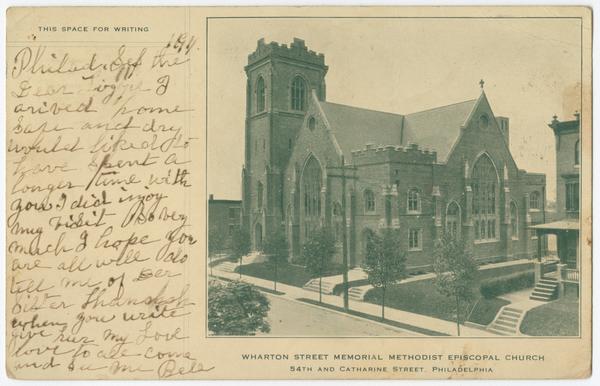 THIS SPACE FOR WRITING
Philad Sep the 19
Dear Lizzie I
arived home
Safe and dry
would liked to
have Spent a
longer time with
you I did injoy
my visit So very
much I hope you
are all well do
tell me of Der
Sister
when you write
give hur my Love
love to all come
and See Me Bell
WHARTON STREET MEMORIAL METHODIST EPISCOPAL CHURCH
54TH AND CATHARINE STREET, PHILADELPHIA